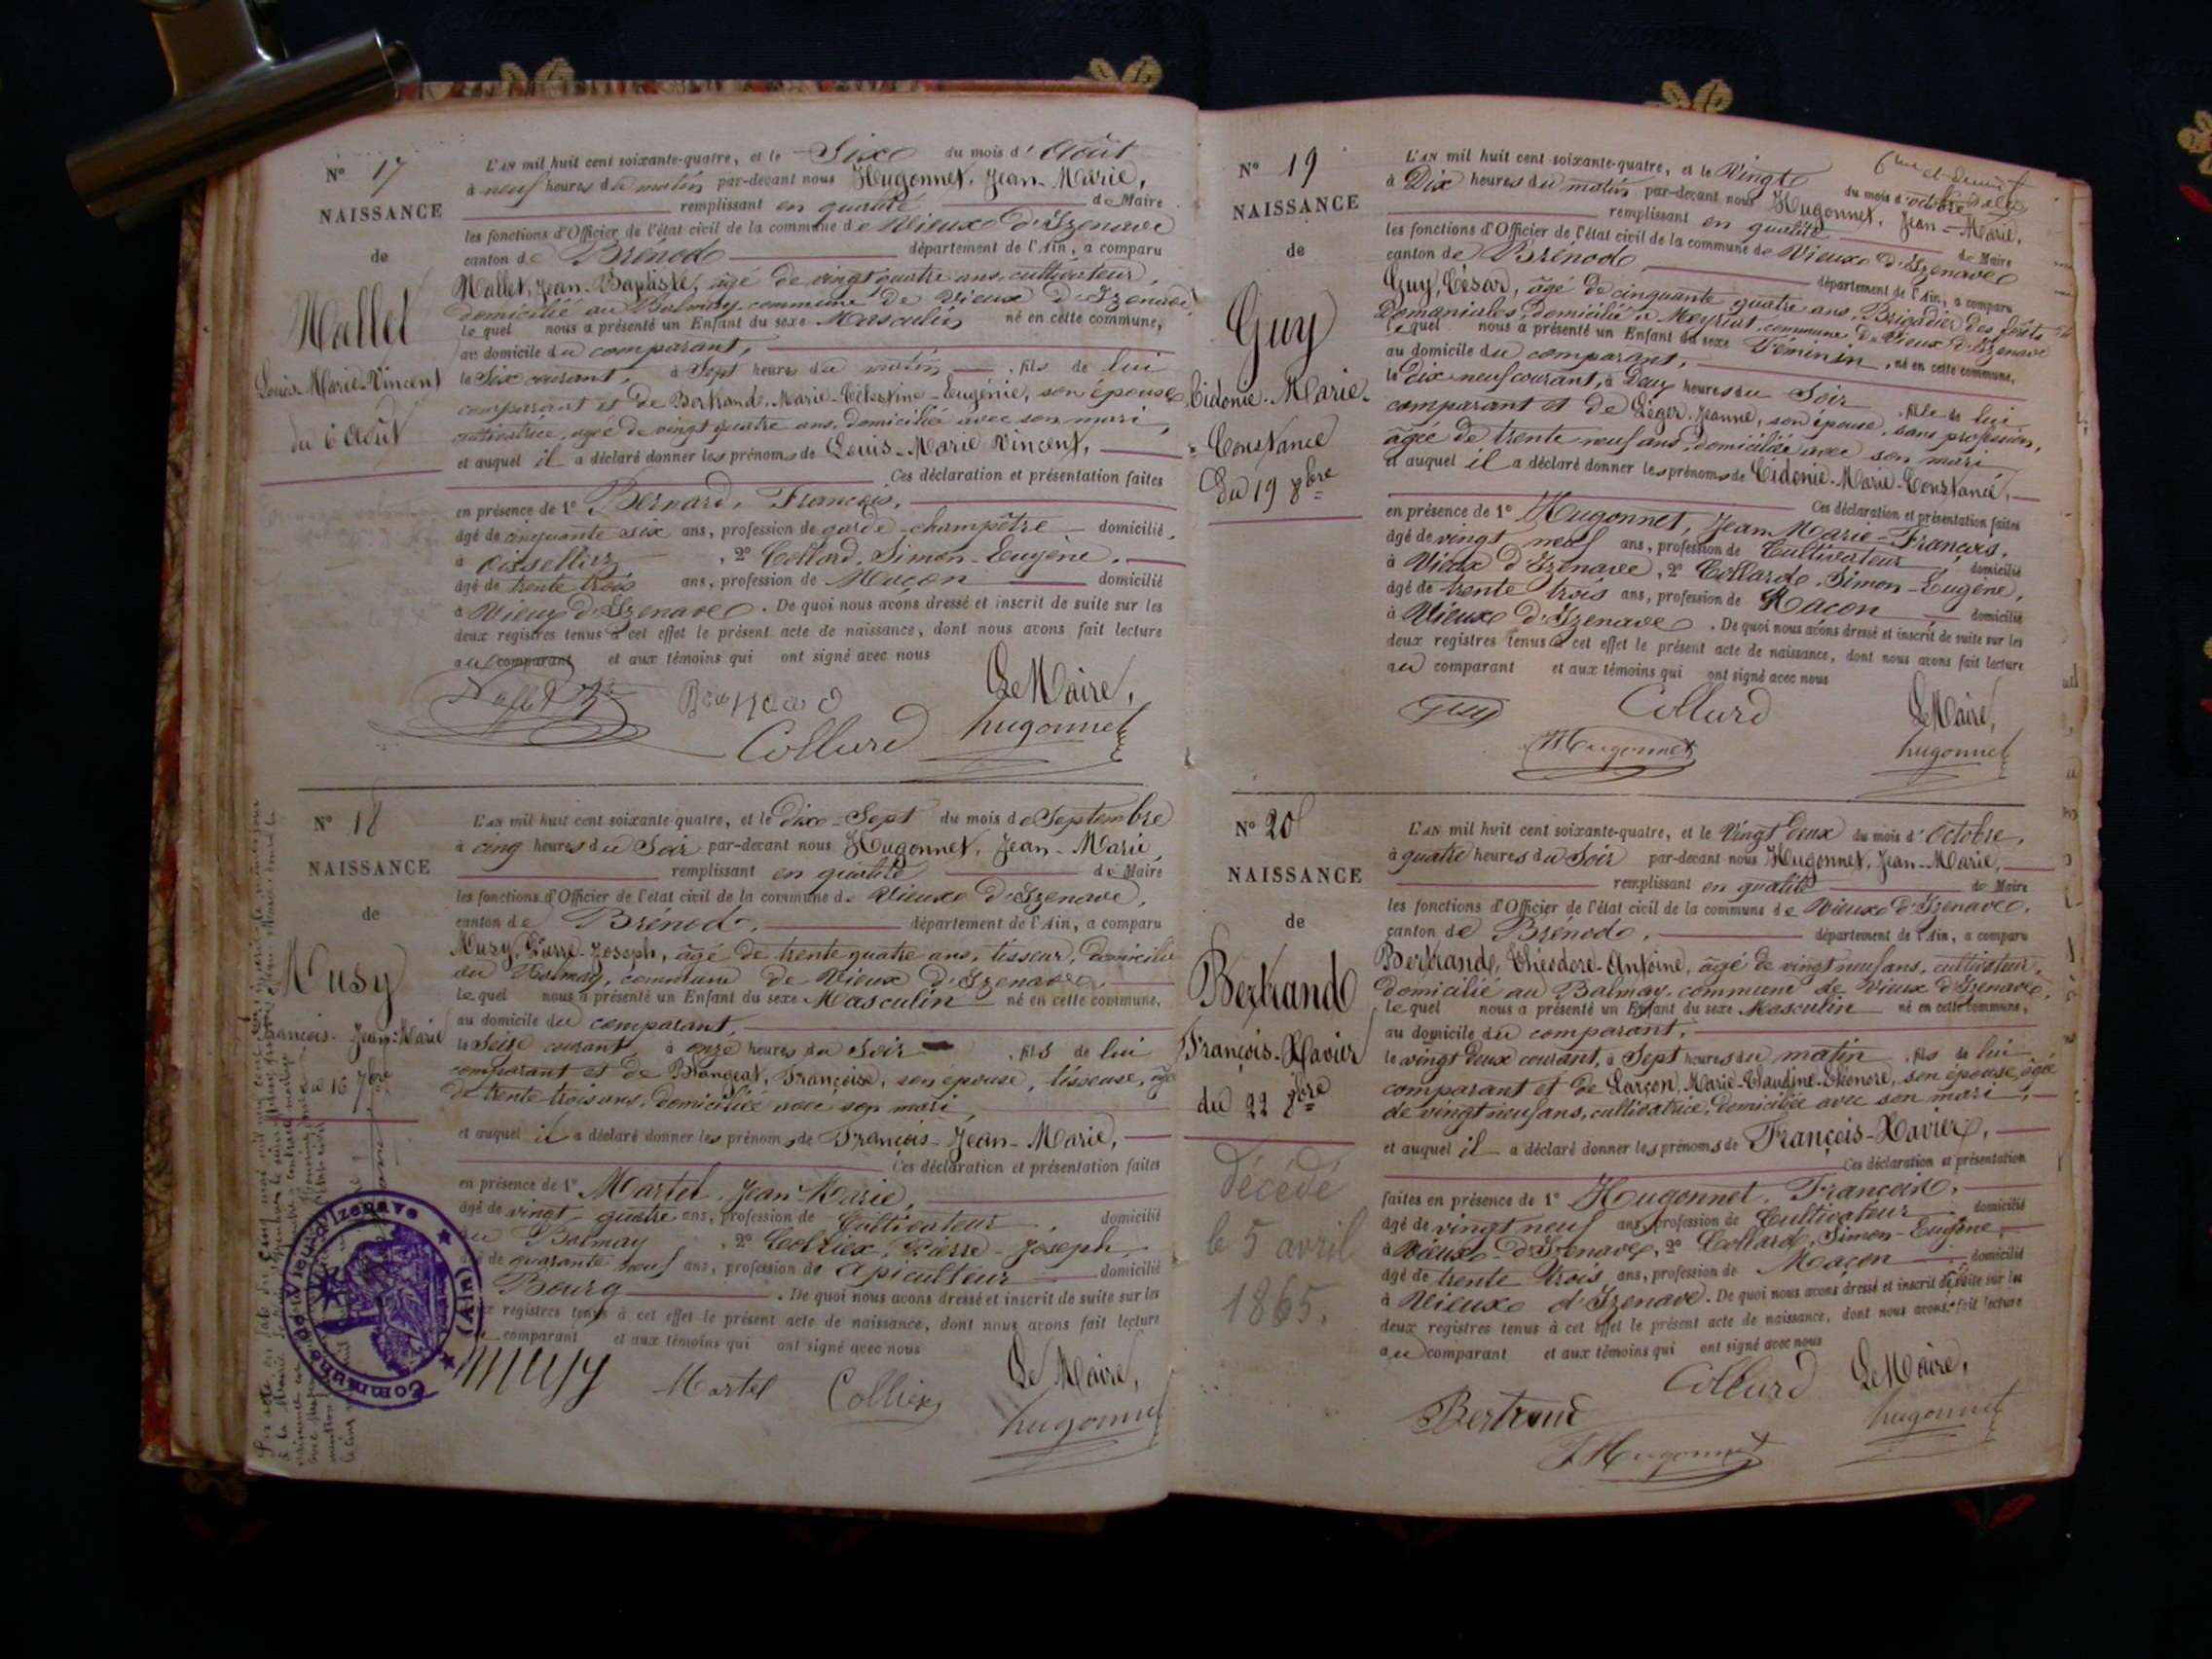 N° 17
NAISSANCE
de
Mallet
Louis-Marie-Vincent
du 6 Août
L'AN mil huit cent soixante-quatre, et le Six du mois d'Août
à neuf heures du matin par-devant nous Hugonnet, Jean-Marie,
remplissant en qualité de Maire
les fonctions d'Officier de l'état civil de la commune de Vieux d'Izenave
canton de Brénod département de l'Ain, a comparu
Mallet, Jean-Baptiste, âgé de vingt quatre ans, cultivateur,
domicilié au Balmay, commune de Vieux d'Izenave,
lequel nous a présenté un Enfant du sexe Masculin né en cette commune,
au domicile du comparant,
le Six courant, à Sept heures du matin, fils de lui
comparant et de Bertrand, Marie-Célestine-Eugénie, son épouse
cultivatrice, âgée de vingt quatre ans, domiciliée avec son mari,
et auquel il a déclaré donner les prénoms de Louis-Marie Vincent,
Ces déclaration et présentation faites
en présence de 1° Bernard, François,
âgé de cinquante six ans, profession de garde-champêtre domicilié
à Oisselliez, 2° Collard, Simon-Eugène,
âgé de trente trois ans, profession de Maçon domicilié
à Vieux d'Izenave. De quoi nous avons dressé et inscrit de suite sur les
deux registres tenus à cet effet le présent acte de naissance, dont nous avons fait lecture
au comparant et aux témoins qui ont signé avec nous
Le Maire,
Bernard
Collard hugonnet
N° 18
NAISSANCE
de
Musy
François-Jean-Marie
16 7bre
L'AN mil huit cent soixante-quatre, et le dix-Sept du mois de Septembre
à cinq heures du Soir par-devant nous Hugonnet, Jean-Marie
remplissant en qualité de Maire
les fonctions d'Officier de l'état civil de la commune de Vieux d'Izenave,
canton de Brénod, département de l'Ain, a comparu
Musy, Pierre-Joseph, âgé de trente quatre ans, tisseur, domicilié
au Balmay, commune de Vieux d'Izenave,
lequel nous a présenté un Enfant du sexe Masculin né en cette commune,
au domicile du comparant,
le Seize courant à onze heures du Soir, fils de lui
comparant et de Blangeat, Françoise, son épouse, tisseuse, âgée
de trente trois ans, domiciliée avec son mari,
et auquel il a déclaré donner les prénoms de François-Jean-Marie,
Ces déclaration et présentation faites
en présence de 1° Martel, Jean-Marie,
âgé de vingt quatre ans, profession de Cultivateur, domicilié
au Balmay, 2° Colliex, Pierre-Joseph,
de quarante neuf ans, profession de apiculteur domicilié
Bourg. De quoi nous avons dressé et inscrit de suite sur les
registres tenus à cet effet le présent acte de naissance, dont nous avons fait lecture
comparant et aux témoins qui ont signé avec nous
Le Maire,
Musy Martel Colliex
hugonnet
Commune de Vieu-d'Izenave (Ain)
N° 19
NAISSANCE
de
Guy
Cidonie-Marie-
Constance
Du 19 8bre
L'AN mil huit cent soixante-quatre, et le Vingt du mois d'octobre
à Dix heures du matin par-devant nous Hugonnet, Jean-Marie,
remplissant en qualité de Maire
les fonctions d'Officier de l'état civil de la commune de Vieux d'Izenave
canton de Brénod département de l'Ain, a comparu
Guy, César, âgé de cinquante quatre ans, Brigadier des forêts
Domaniales, domicilié à Meyriat, commune de Vieux d'Izenave
lequel nous a présenté un Enfant du sexe Féminin, né en cette commune,
au domicile du comparant,
le dix-neuf courant, à Deux heures du Soir, fille de lui
comparant et de Léger, Jeanne, son épouse, sans profession,
âgée de trente neuf ans, domiciliée avec son mari,
et auquel il a déclaré donner les prénoms de Cidonie-Marie-Constance,
Ces déclaration et présentation faites
en présence de 1° Hugonnet, Jean Marie-François,
âgé de vingt neuf ans, profession de Cultivateur, domicilié
à Vieux d'Izenave, 2° Collard, Simon-Eugène,
âgé de trente trois ans, profession de Maçon domicilié
à Vieux d'Izenave. De quoi nous avons dressé et inscrit de suite sur les
deux registres tenus à cet effet le présent acte de naissance, dont nous avons fait lecture
au comparant et aux témoins qui ont signé avec nous
Guy Collard Le Maire,
Hugonnet hugonnet
N° 20
NAISSANCE
de
Bertrand
François-Xavier
du 22 8bre
Décédé
le 5 avril
1865.
L'AN mil huit cent soixante-quatre, et le Vingt deux du mois d'Octobre,
à quatre heures du Soir par-devant nous Hugonnet, Jean-Marie,
remplissant en qualité de Maire
les fonctions d'Officier de l'état civil de la commune de Vieux d'Izenave,
canton de Brénod, département de l'Ain, a comparu
Bertrand, Théodore-Antoine, âgé de vingt neuf ans, cultivateur,
domicilié au Balmay, commune de Vieux d'Izenave,
lequel nous a présenté un Enfant du sexe Masculin né en cette commune,
au domicile du comparant,
le vingt deux courant, à Sept heures du matin, fils de lui
comparant et de Larçon, Marie-Claudine-Eléonore, son épouse, âgée
de vingt neuf ans, cultivatrice, domiciliée avec son mari,
et auquel il a déclaré donner les prénoms de François-Xavier,
Ces déclaration et présentation
faites en présence de 1° Hugonnet, François,
âgé de vingt neuf ans, profession de Cultivateur domicilié
à Vieux d'Izenave, 2° Collard, Simon-Eugène,
âgé de trente trois ans, profession de Maçon domicilié
à Vieux d'Izenave. De quoi nous avons dressé et inscrit de suite sur les
deux registres tenus à cet effet le présent acte de naissance, dont nous avons fait lecture
au comparant et aux témoins qui ont signé avec nous
Collard Le Maire,
Bertrand hugonnet
Hugonnet